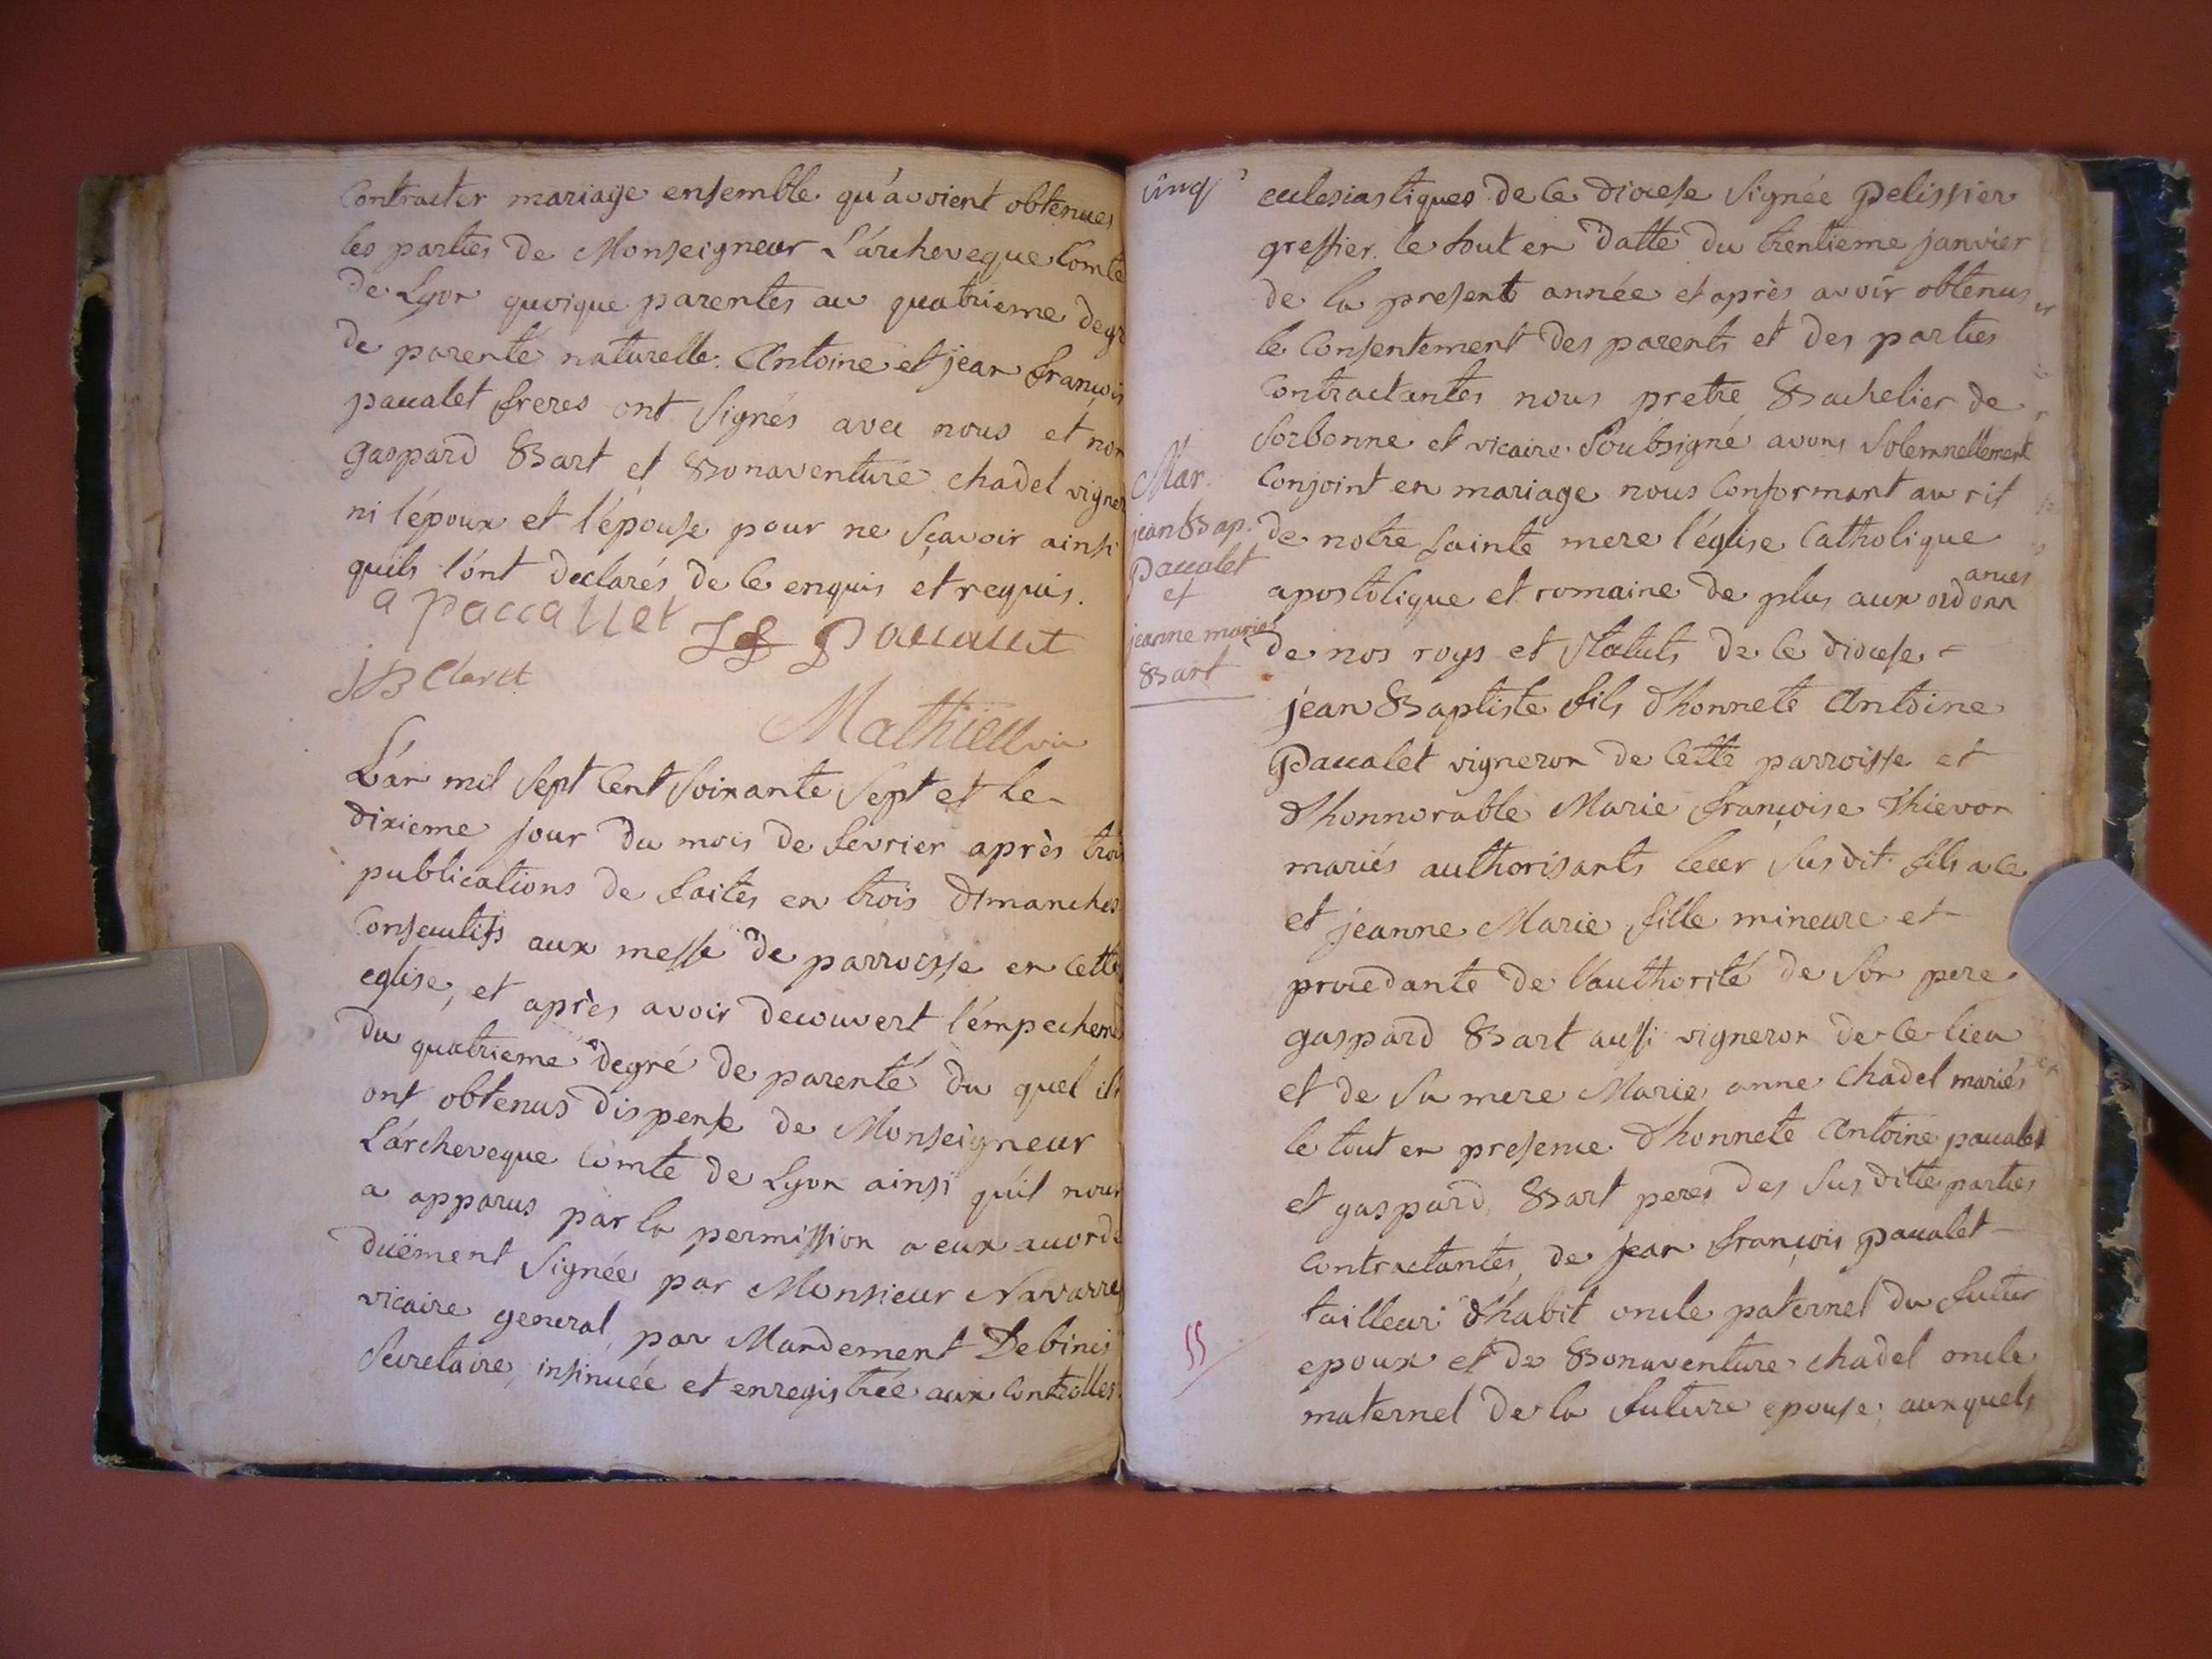 Contracter mariage ensemble qu'avoient obtenues
les parties de Monseigneur L'archeveque Comte
de Lyon quoique parentes au quatrieme degr
de parenté naturelle. Antoine et jean françois
paccalet freres ont signés avec nous et non
gaspard Bart et Bonaventure chadel vigner
ni l'époux et l'épouse pour ne sçavoir ainsi
quils l'ont declarés de ce enquis et requis.
a paccallet JF Paccallet
JB Claret
Mathieu vic
L'an mil sept cent soixante sept et le
dixieme jour du mois de fevrier après trois
publications de faites en trois dimanches
Consecutifs aux messe de parroisse en cette
eglise, et après avoir decouvert l'empechem
du quatrieme degré de parenté du quel ils
ont obtenus dispense de Monseigneur
L'archeveque Comte de Lyon ainsi qu'il nous
a apparus par la permission a eux accordé
duëment signée par Monsieur Navarre
vicaire general, par Mandement Debinci
secretaire, insinuée et enregistrée aux controlles
cinq
ecclesiastiques de ce diocese signée pelissier
greffier. le tout en datte du trentieme janvier
de la present année et après avoir obtenus
le Consentement des parents et des parties
Contractantes nous pretre Bachelier de
sorbonne et vicaire soubsigné avons solemnellement
Conjoint en mariage nous Conformant au rit
de notre sainte mere l'église Catholique
apostolique et romaine de plus aux ordonnances
de nos roys et statuts de ce diocese =
Mar.
jean Bap.
Paccalet
et
jeanne marie
Bart
jean Baptiste fils d'honnete Antoine
Paccalet vigneron de cette parroisse et
d'honnorable Marie françoise Thievon
mariés authorisants leur susdit fils a ce
et jeanne Marie fille mineure et
procedante de l'authorité de son pere
gaspard Bart aussi vigneron de ce lieu
et de sa mere Marie anne chadel mariés
le tout en presence d'honnete Antoine paccalet
et gaspard Bart peres des sus ditte parties
contractantes, de jean françois paccalet
tailleur d'habit oncle paternel du futur
epoux et de Bonaventure chadel oncle
maternel de la future epouse, auxquels
55